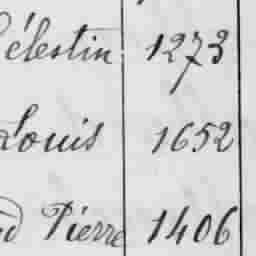 Célestin 1273
Louis 1652
Pierre 1406